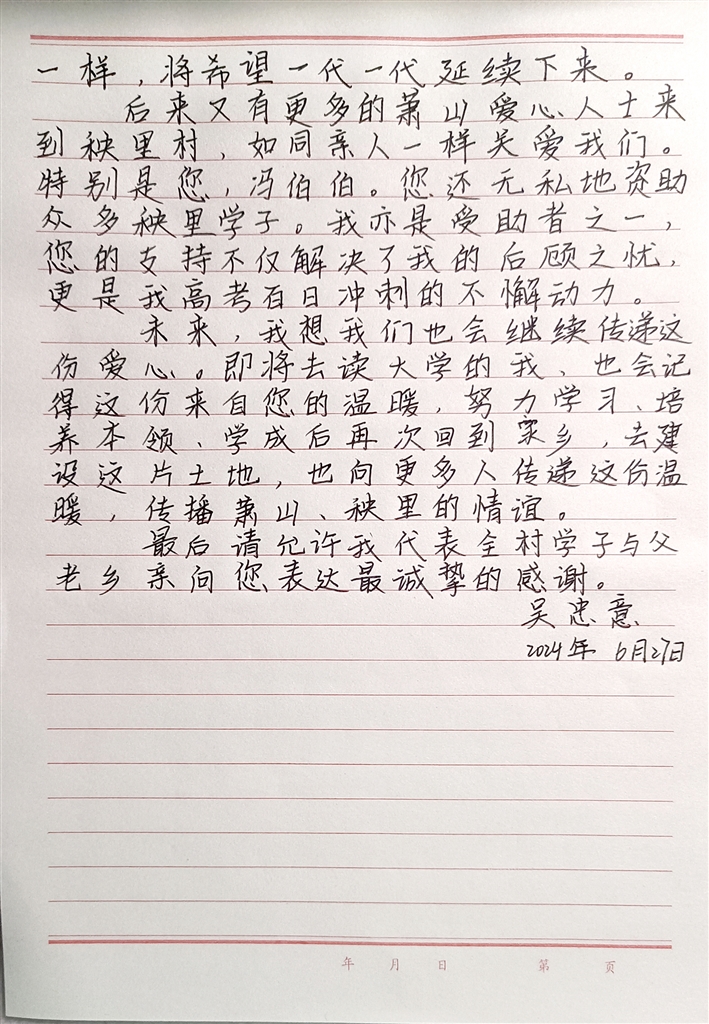 一样，将希望一代一代延续下来。
后来又有更多的萧山爱心人士来
到秧里村，如同亲人一样关爱我们。
特别是您，冯伯伯。您还无私地资助
众多秧里学子。我亦是受助者之一，
您的支持不仅解决了我的后顾之忧，
更是我高考百日冲刺的不懈动力。
未来，我想我们也会继续传递这
份爱心。即将去读大学的我、也会记
得这份来自您的温暖，努力学习、培
养本领、学成后再次回到家乡，去建
设这片土地，也向更多人传递这份温
暖，传播萧山、秧里的情谊。
最后请允许我代表全村学子与父
老乡亲向您表达最诚挚的感谢。
吴忠意
2024年 6月27日
年 月 日 第 页